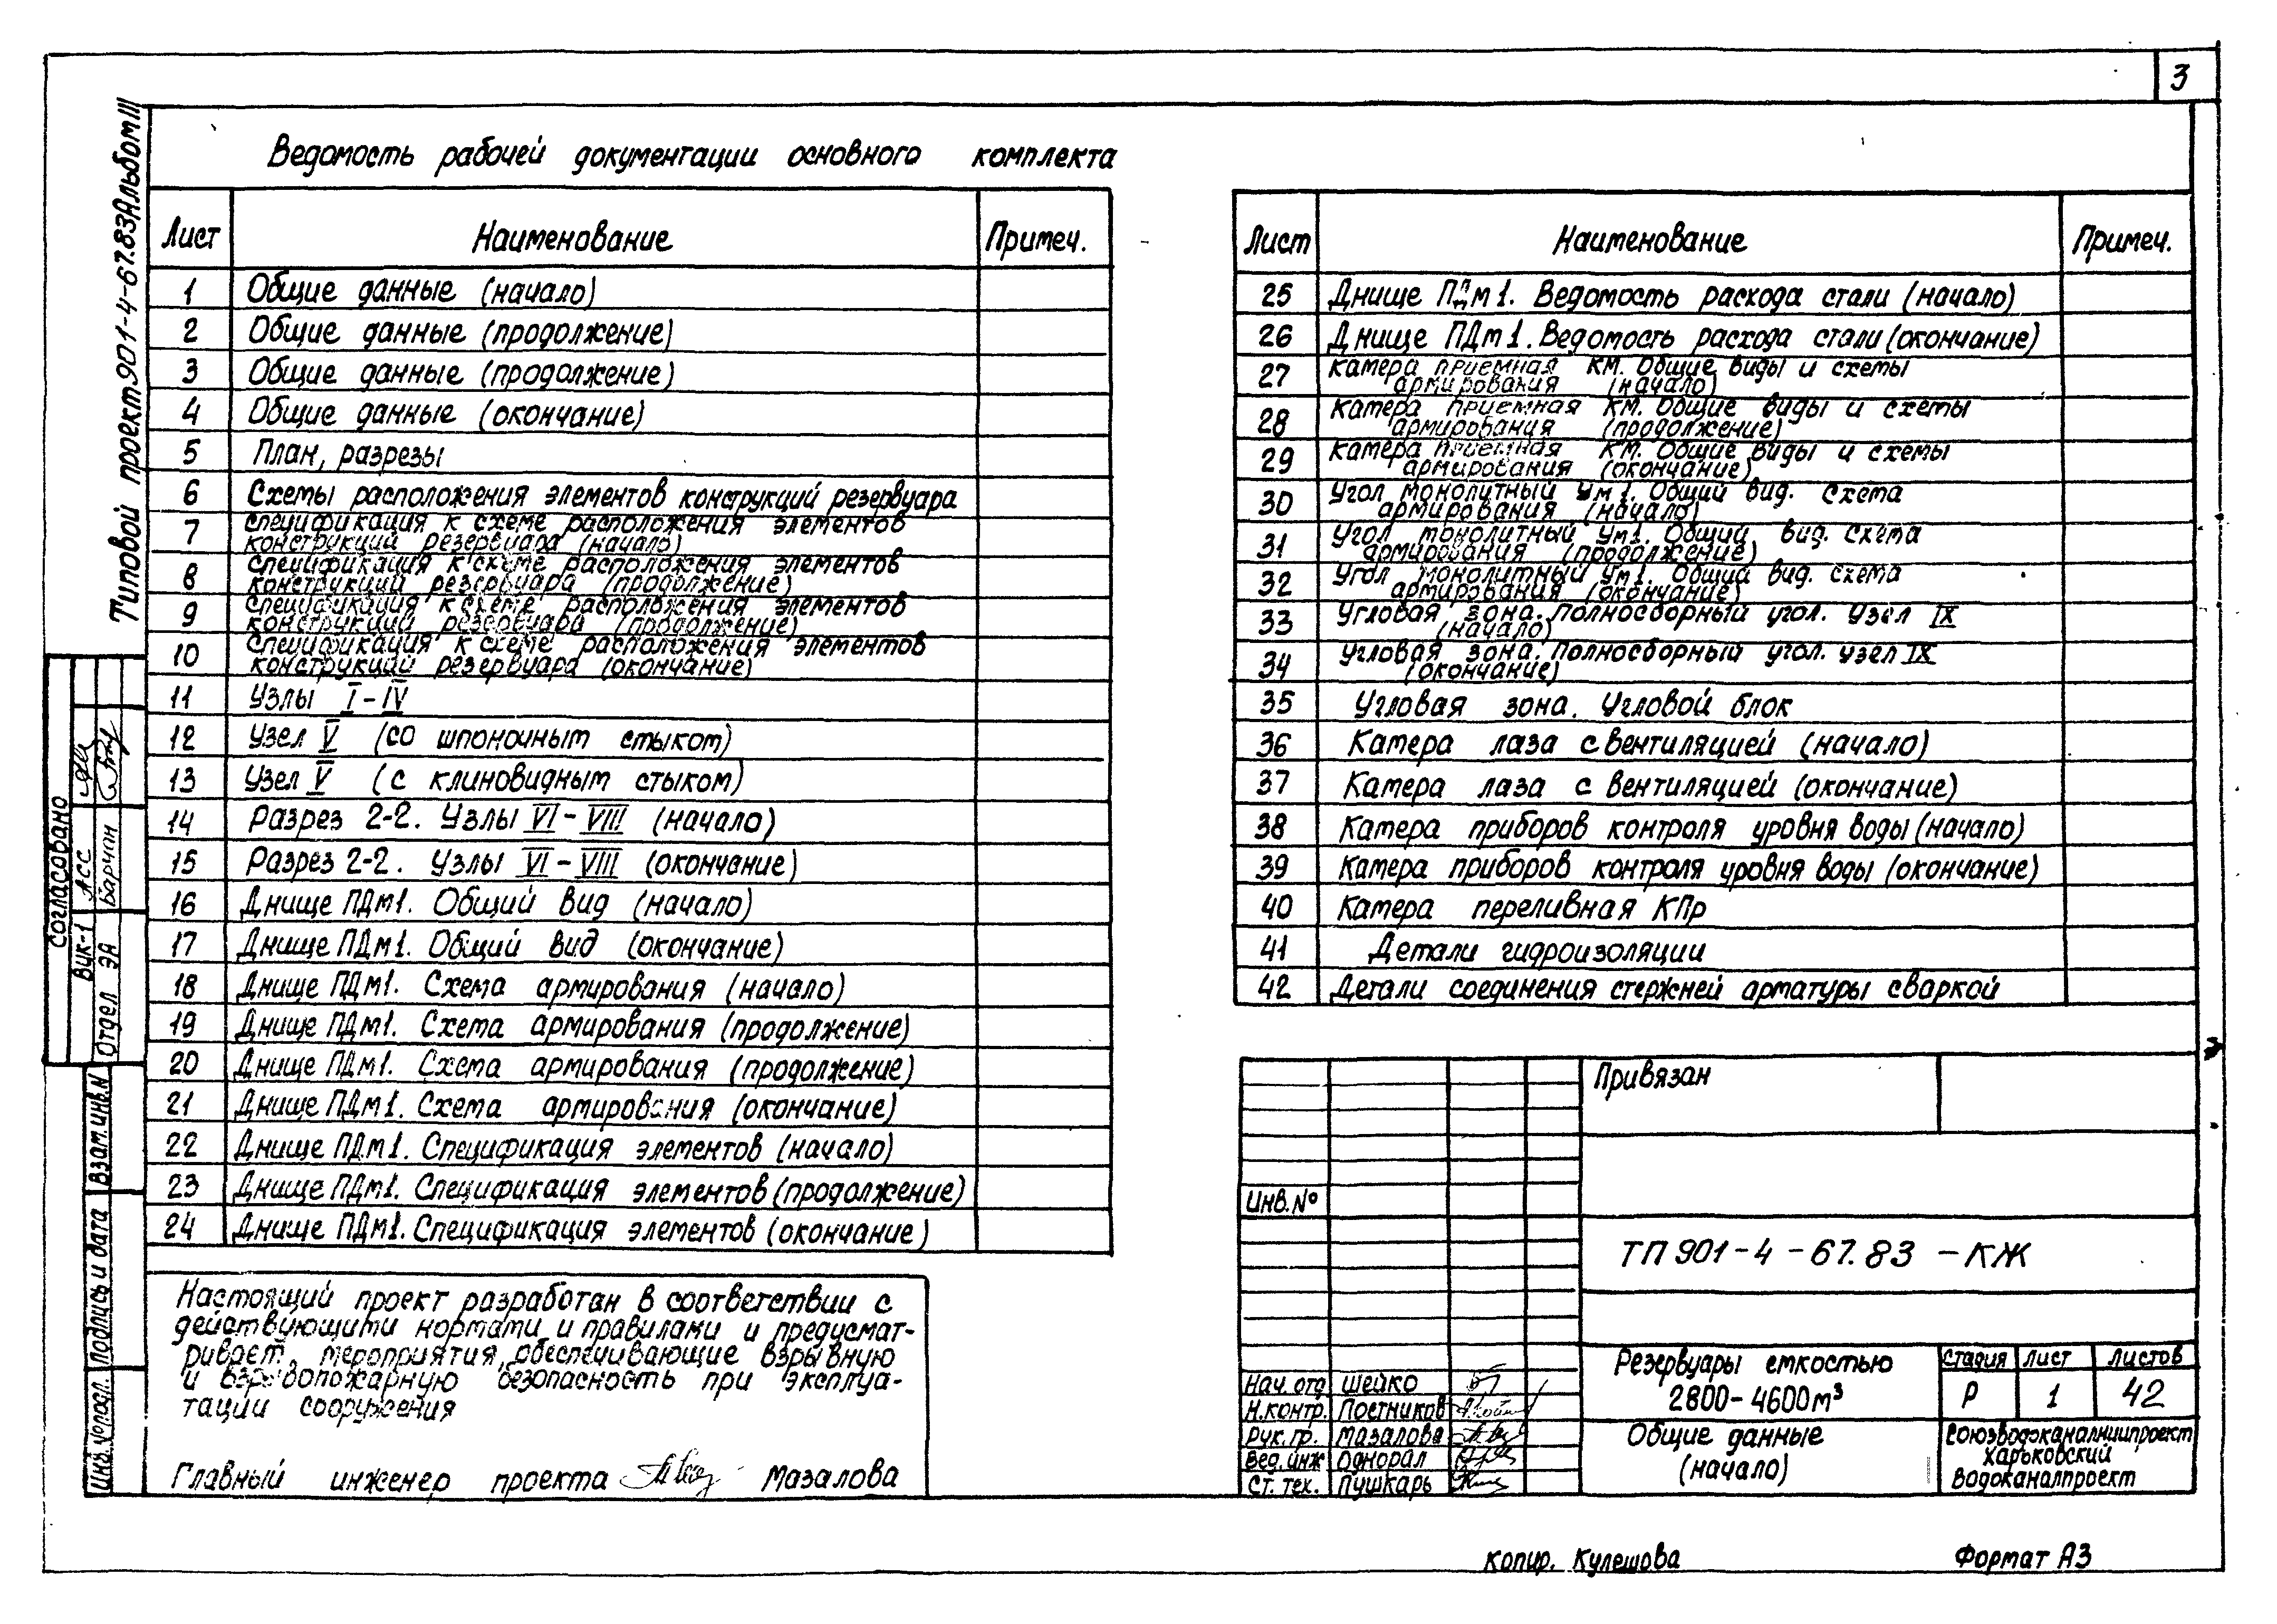 3
Типовой проект 901-4-67.83 Альбом III
Ведомость рабочей документации основного комплекта
Лист Наименование Примеч.
1 Общие данные (начало)
2 Общие данные (продолжение)
3 Общие данные (продолжение)
4 Общие данные (окончание)
5 План, разрезы
6 Схемы расположения элементов конструкций резервуара
7 Спецификация к схеме расположения элементов
конструкций резервуара (начало)
8 Спецификация к схеме расположения элементов
конструкций резервуара (продолжение)
9 Спецификация к схеме расположения элементов
конструкций резервуара (продолжение)
10 Спецификация к схеме расположения элементов
конструкций резервуара (окончание)
11 Узлы I-IV
12 Узел V (со шпоночным стыком)
13 Узел V (с клиновидным стыком)
14 Разрез 2-2. Узлы VI-VIII (начало)
15 Разрез 2-2. Узлы VI-VIII (окончание)
16 Днище ПДм1. Общий вид (начало)
17 Днище ПДм1. Общий вид (окончание)
18 Днище ПДм1. Схема армирования (начало)
19 Днище ПДм1. Схема армирования (продолжение)
20 Днище ПДм1. Схема армирования (продолжение)
21 Днище ПДм1. Схема армирования (окончание)
22 Днище ПДм1. Спецификация элементов (начало)
23 Днище ПДм1. Спецификация элементов (продолжение)
24 Днище ПДм1. Спецификация элементов (окончание)
Лист Наименование Примеч.
25 Днище ПДм1. Ведомость расхода стали (начало)
26 Днище ПДм1. Ведомость расхода стали (окончание)
27 Камера приемная КМ. Общие виды и схемы
армирования (начало)
28 Камера приемная КМ. Общие виды и схемы
армирования (продолжение)
29 Камера приемная КМ. Общие виды и схемы
армирования (окончание)
30 Угол монолитный Ум1. Общий вид. Схема
армирования (начало)
31 Угол монолитный Ум1. Общий вид. Схема
армирования (продолжение)
32 Угол монолитный Ум1. Общий вид. Схема
армирования (окончание)
33 Угловая зона. Полносборный угол. Узел IX
(начало)
34 Угловая зона. Полносборный угол. Узел IX
(окончание)
35 Угловая зона. Угловой блок
36 Камера лаза с вентиляцией (начало)
37 Камера лаза с вентиляцией (окончание)
38 Камера приборов контроля уровня воды (начало)
39 Камера приборов контроля уровня воды (окончание)
40 Камера переливная КПр
41 Детали гидроизоляции
42 Детали соединения стержней арматуры сваркой
Настоящий проект разработан в соответствии с
действующими нормами и правилами и предусмат-
ривает мероприятия, обеспечивающие взрывную
и взрывопожарную безопасность при эксплуа-
тации сооружения
Главный инженер проекта Мазалова
Согласовано
ВУК-1 Асс
Отдел ЭА Барчан
Взам.инв.N
Подпись и дата
Инв.№подл.
Привязан
Инв.№
ТП 901-4-67.83 -КЖ
Нач. отд Шейко
Н.контр. Постников
Рук. гр. Мазалова
Вед. инж Однорал
Ст. тех. Пушкарь
Резервуары емкостью
2800-4600м³
Стадия Лист Листов
Р 1 42
Общие данные
(начало)
Союзводоканалниипроект
Харьковский
Водоканалпроект
копир. Кулешова
Формат А3